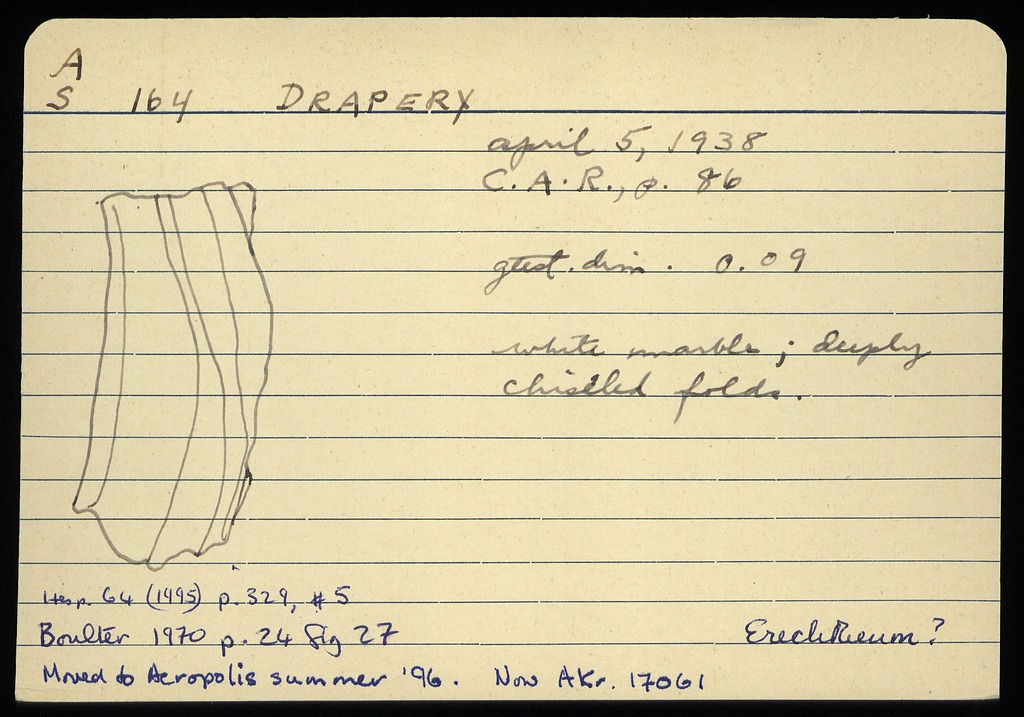 A
S 164 DRAPERY
april 5, 1938
C.A.R., p. 86
gtest. dim. 0.09
white marble; deeply
chiselled folds.
Hesp. 64 (1995) p. 329, #5
Boulter 1970 p. 24 fig 27
Erechtheum?
Moved to Acropolis summer '96. Now AKr. 17061